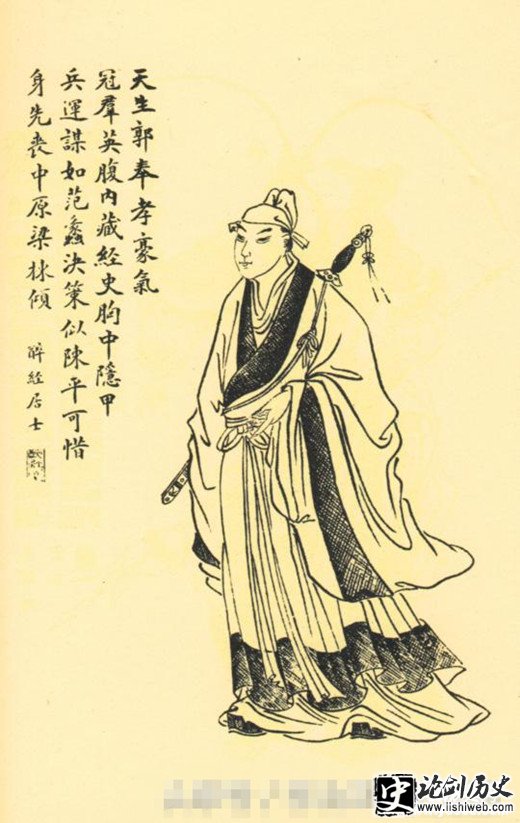 天生郭奉孝豪氣
冠羣英腹內藏經史胸中隱甲
兵運謀如范蠡決策似陳平可惜
身先喪中原梁棟傾
醉經居士
史 论剑历史
www.lishiweb.com